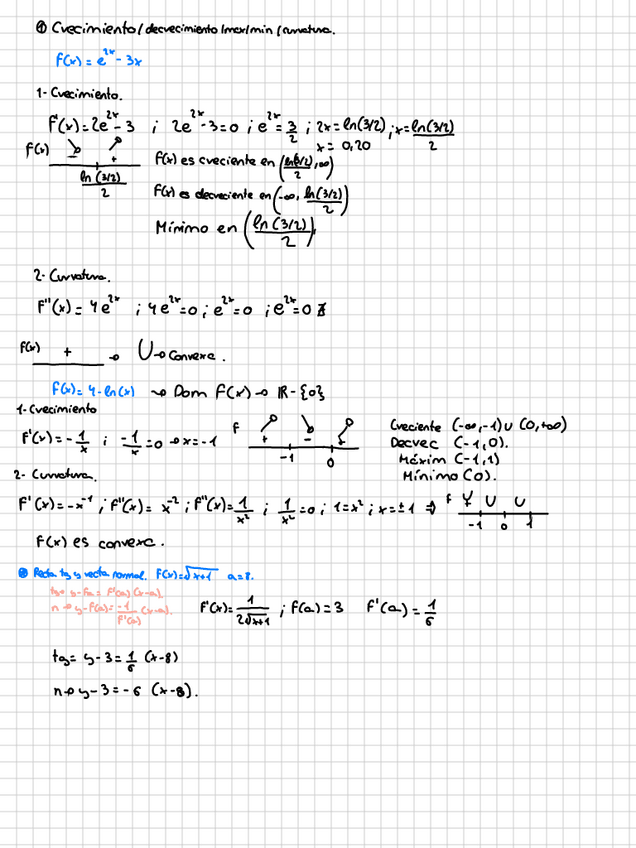 ① Crecimiento / decrecimiento / max / min / curvatura.
f(x) = e^2x - 3x
1- Crecimiento.
f'(x) = 2e^2x - 3 ; 2e^2x - 3 = 0 ; e^2x = 3/2 ; 2x = ln(3/2) ; x = ln(3/2)/2
x = 0,20
f(x) - +
ln(3/2)/2
f(x) es creciente en (ln(3/2)/2, ∞)
f(x) es decreciente en (-∞, ln(3/2)/2)
Mínimo en (ln(3/2)/2,
2- Curvatura.
f''(x) = 4e^2x ; 4e^2x = 0 ; e^2x = 0 ; e^2x = 0 ∄
f(x) + → ∪ → Convexa.
f(x) = 4 - ln(x) → Dom f(x) → IR - {0}
1- Crecimiento
f'(x) = -1/x ; -1/x = 0 → x = -1
f + - +
-1 0
Creciente (-∞, -1) ∪ (0, +∞)
Decrec (-1, 0).
Máxim (-1, 1)
Mínimo (0).
2- Curvatura.
f'(x) = -x^-1 ; f''(x) = x^-2 ; f''(x) = 1/x² ; 1/x² = 0 ; 1 = x² ; x = ±1 ⇒
f ∪ ∪
-1 0 1
f(x) es convexa.
Recta tg y recta normal. f(x) = √x+1 a = 8.
tg = y - fa = f'(a) (x-a)
n → y - f(a) = -1/f'(a) (x-a).
f'(x) = 1/2√x+1 ; f(a) = 3 f'(a) = 1/6
tg = y - 3 = 1/6 (x - 8)
n → y - 3 = -6 (x - 8).